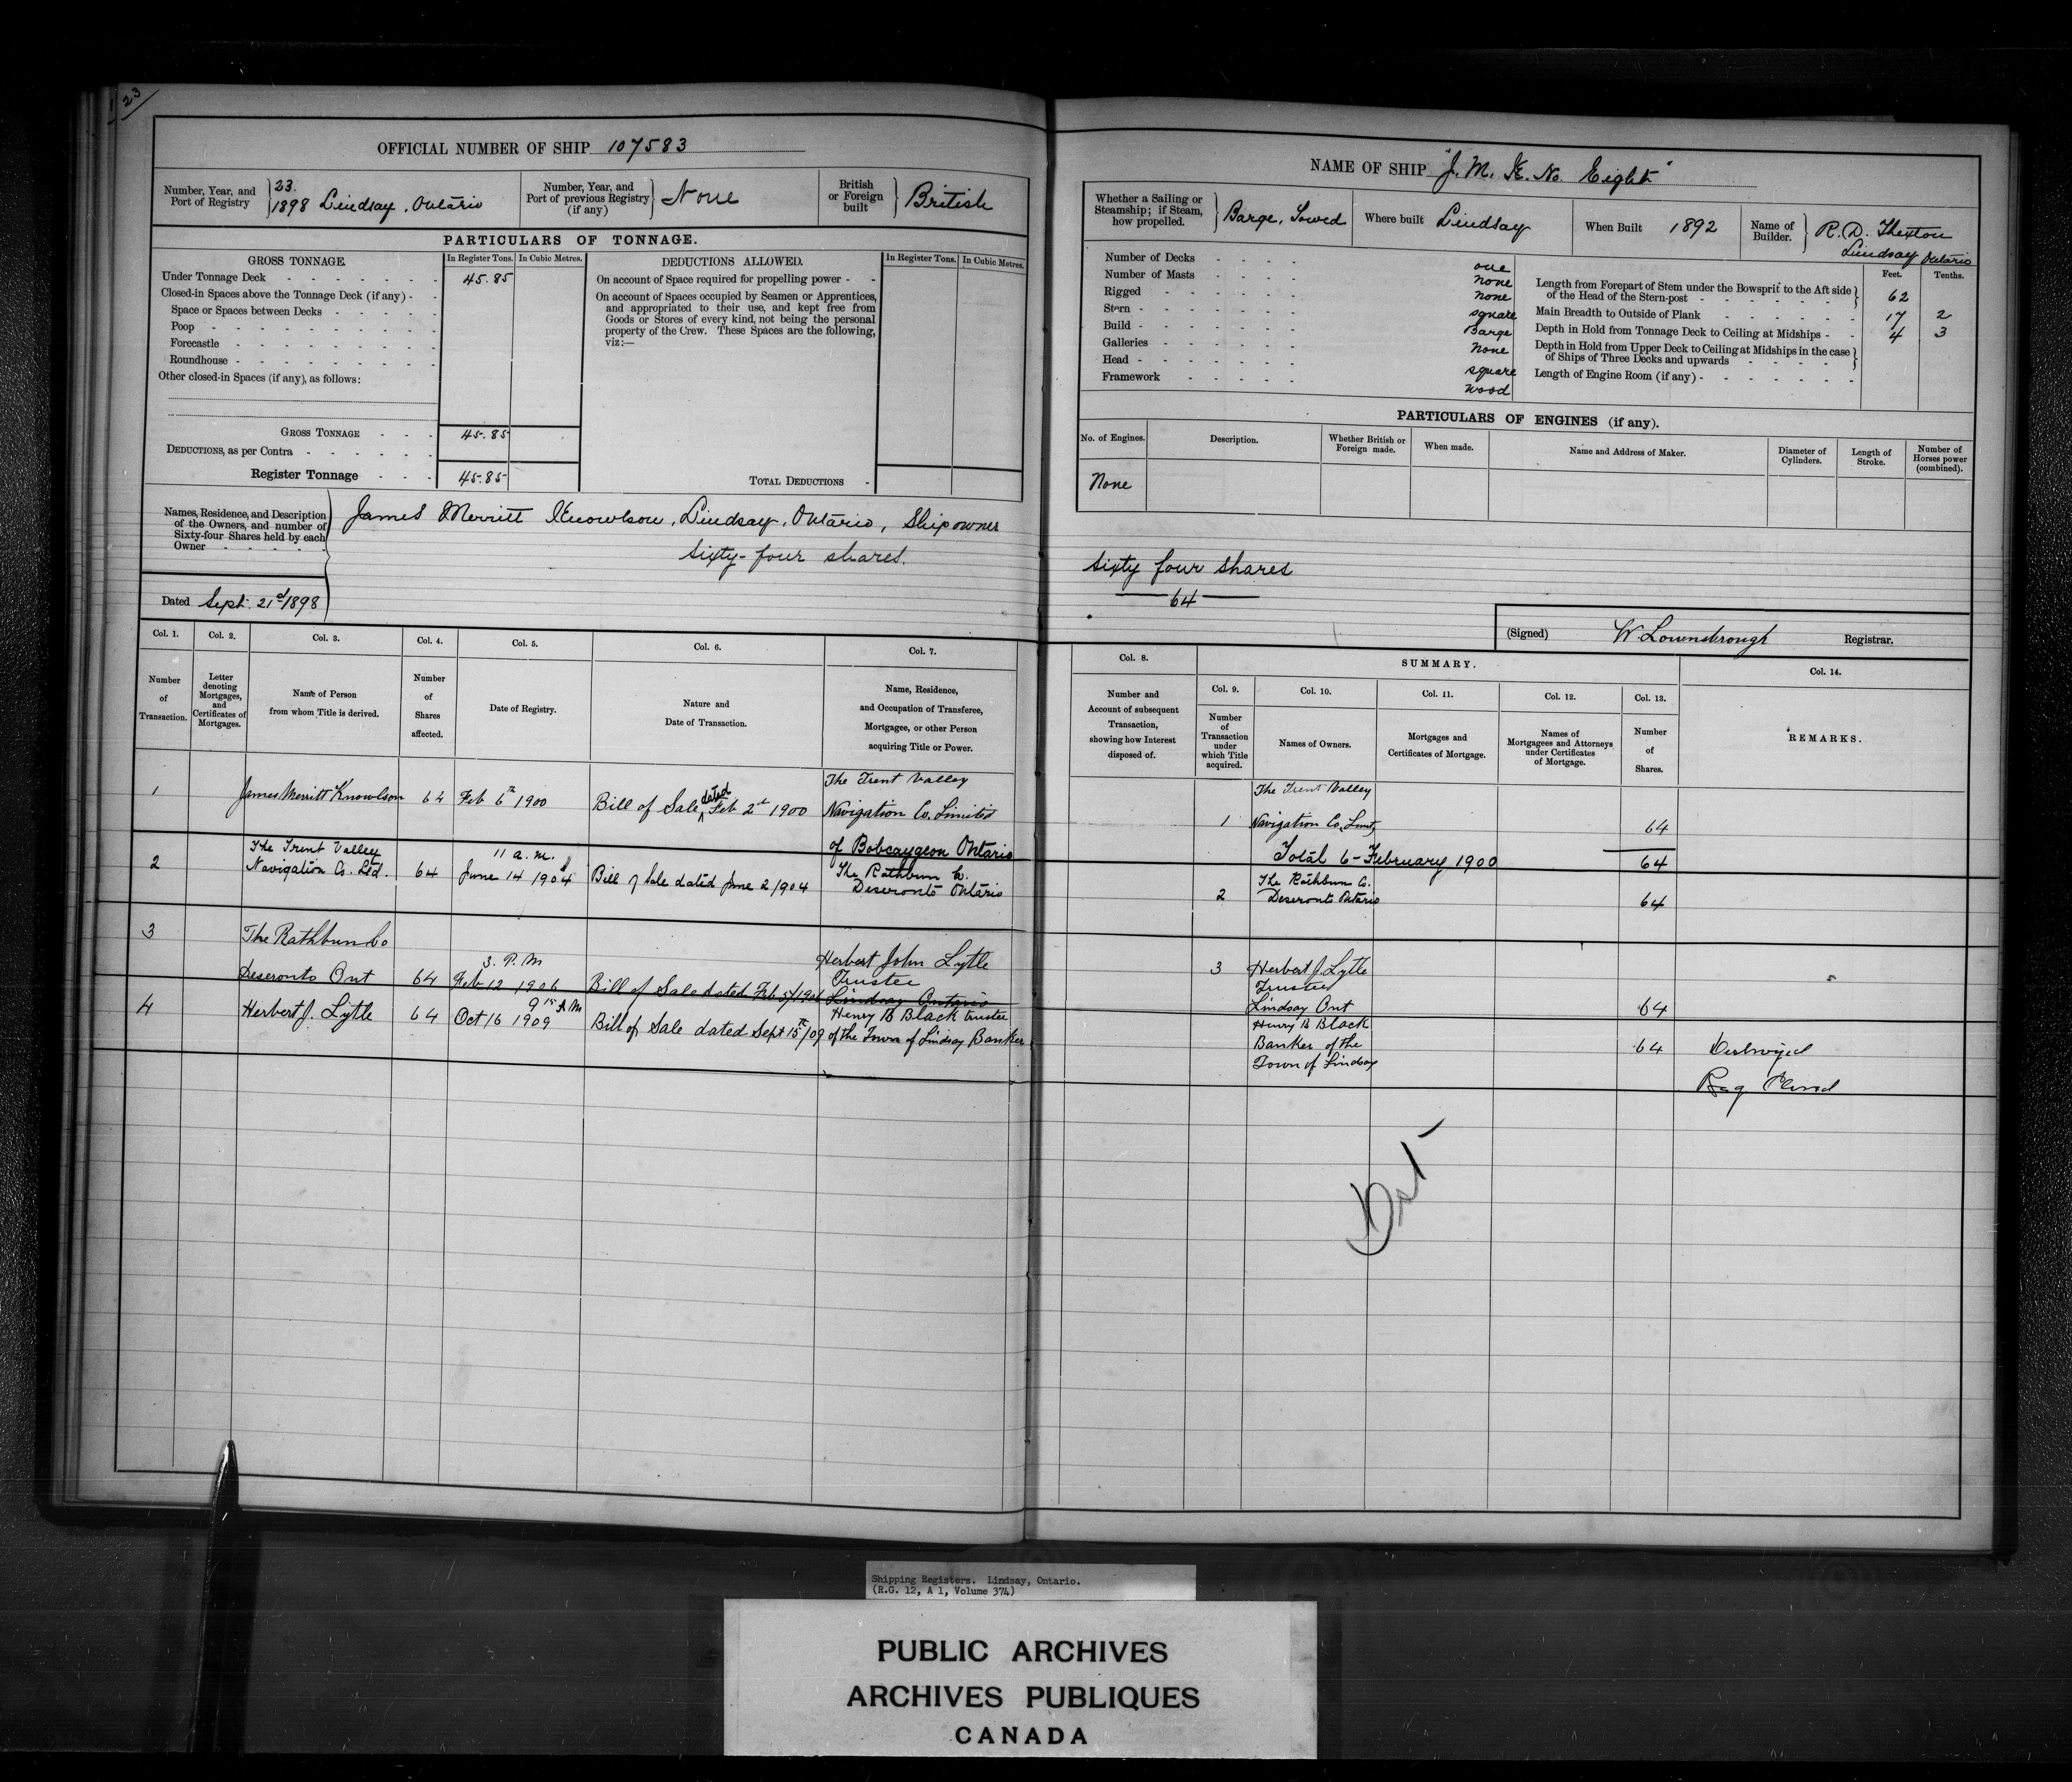 23
OFFICIAL NUMBER OF SHIP 107583
Number, Year, and Port of Registry
23.
1898 Lindsay, Ontario
Number, Year, and Port of previous Registry (if any)
None
British or Foreign built
British
PARTICULARS OF TONNAGE.
GROSS TONNAGE.
In Register Tons.
In Cubic Metres.
DEDUCTIONS ALLOWED.
In Register Tons.
In Cubic Metres.
Under Tonnage Deck 45.85
Closed-in Spaces above the Tonnage Deck (if any) -
Space or Spaces between Decks
Poop
Forecastle
Roundhouse
Other closed-in Spaces (if any), as follows:
On account of Space required for propelling power
On account of Spaces occupied by Seamen or Apprentices,
and appropriated to their use, and kept free from
Goods or Stores of every kind, not being the personal
property of the Crew. These Spaces are the following,
viz:—
GROSS TONNAGE 45.85
DEDUCTIONS, as per Contra
Register Tonnage 45.85
TOTAL DEDUCTIONS
Names, Residence, and Description
of the Owners, and number of
Sixty-four Shares held by each
Owner
James Merritt Knowlson, Lindsay, Ontario, Shipowner
Sixty-four shares.
Dated Sept. 21st 1898
Col. 1. Col. 2. Col. 3. Col. 4. Col. 5. Col. 6. Col. 7.
Number of Transaction.
Letter denoting Mortgages, and Certificates of Mortgages.
Name of Person from whom Title is derived.
Number of Shares affected.
Date of Registry.
Nature and Date of Transaction.
Name, Residence, and Occupation of Transferee, Mortgagee, or other Person acquiring Title or Power.
The Trent Valley
1 James Merritt Knowlson 64 Feb 6th 1900 Bill of Sale dated Feb 2d 1900 Navigation Co. Limited
of Bobcaygeon Ontario
The Trent Valley 11 a.m. The Rathbun Co.
2 Navigation Co. Ltd. 64 June 14 1904 Bill of Sale dated June 2 1904 Deseronto Ontario
3 The Rathbun Co
3. P.M Herbert John Lytle
Deseronto Ont 64 Feb 12 1906 Bill of Sale dated Feb 5/1906 Trustee
Lindsay Ontario
9 15 AM Henry B Black trustee
4 Herbert J. Lytle 64 Oct 16 1909 Bill of Sale dated Sept 15th/09 of the Town of Lindsay Banker
NAME OF SHIP "J. M. K. No. Eight"
Whether a Sailing or Steamship; if Steam, how propelled.
Barge, Towed
Where built Lindsay
When Built 1892
Name of Builder.
R. D. Thexton
Lindsay Ontario
Number of Decks one
Number of Masts none
Rigged none
Stern square
Build Barge
Galleries None
Head square
Framework wood
Feet. Tenths.
Length from Forepart of Stem under the Bowsprit to the Aft side
of the Head of the Stern-post 62
Main Breadth to Outside of Plank 17 2
Depth in Hold from Tonnage Deck to Ceiling at Midships 4 3
Depth in Hold from Upper Deck to Ceiling at Midships in the case
of Ships of Three Decks and upwards
Length of Engine Room (if any)
PARTICULARS OF ENGINES (if any).
No. of Engines.
Description.
Whether British or Foreign made.
When made.
Name and Address of Maker.
Diameter of Cylinders.
Length of Stroke.
Number of Horses power (combined).
None
Sixty four shares
64
(Signed) W. Lownsbrough Registrar.
Col. 8.
SUMMARY.
Col. 9. Col. 10. Col. 11. Col. 12. Col. 13. Col. 14.
Number and Account of subsequent Transaction, showing how Interest disposed of.
Number of Transaction under which Title acquired.
Names of Owners.
Mortgages and Certificates of Mortgage.
Names of Mortgagees and Attorneys under Certificates of Mortgage.
Number of Shares.
REMARKS.
The Trent Valley
1 Navigation Co. Limtd 64
Total 6 - February 1900 64
The Rathbun Co.
2 Deseronto Ontario 64
3 Herbert J. Lytle
Trustee
Lindsay Ont 64
Henry B Black
Banker of the 64 Destroyed
Town of Lindsay
Reg Closed
Shipping Registers. Lindsay, Ontario.
(R.G. 12, A 1, Volume 374)
PUBLIC ARCHIVES
ARCHIVES PUBLIQUES
CANADA